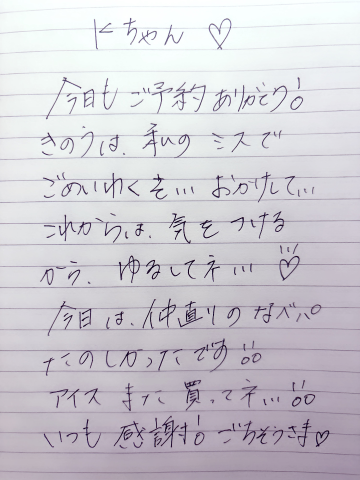 Kちゃん ♡
今日も ご予約 ありがとう!
きのうは、私の ミスで
ごめいわくを… おかけして…
これからは、気を つける
から、ゆるしてネ… ♡
今日は、仲直りの なべ
たのしかったです
アイス また 買ってネ…
いつも 感謝! ごちそうさま♡